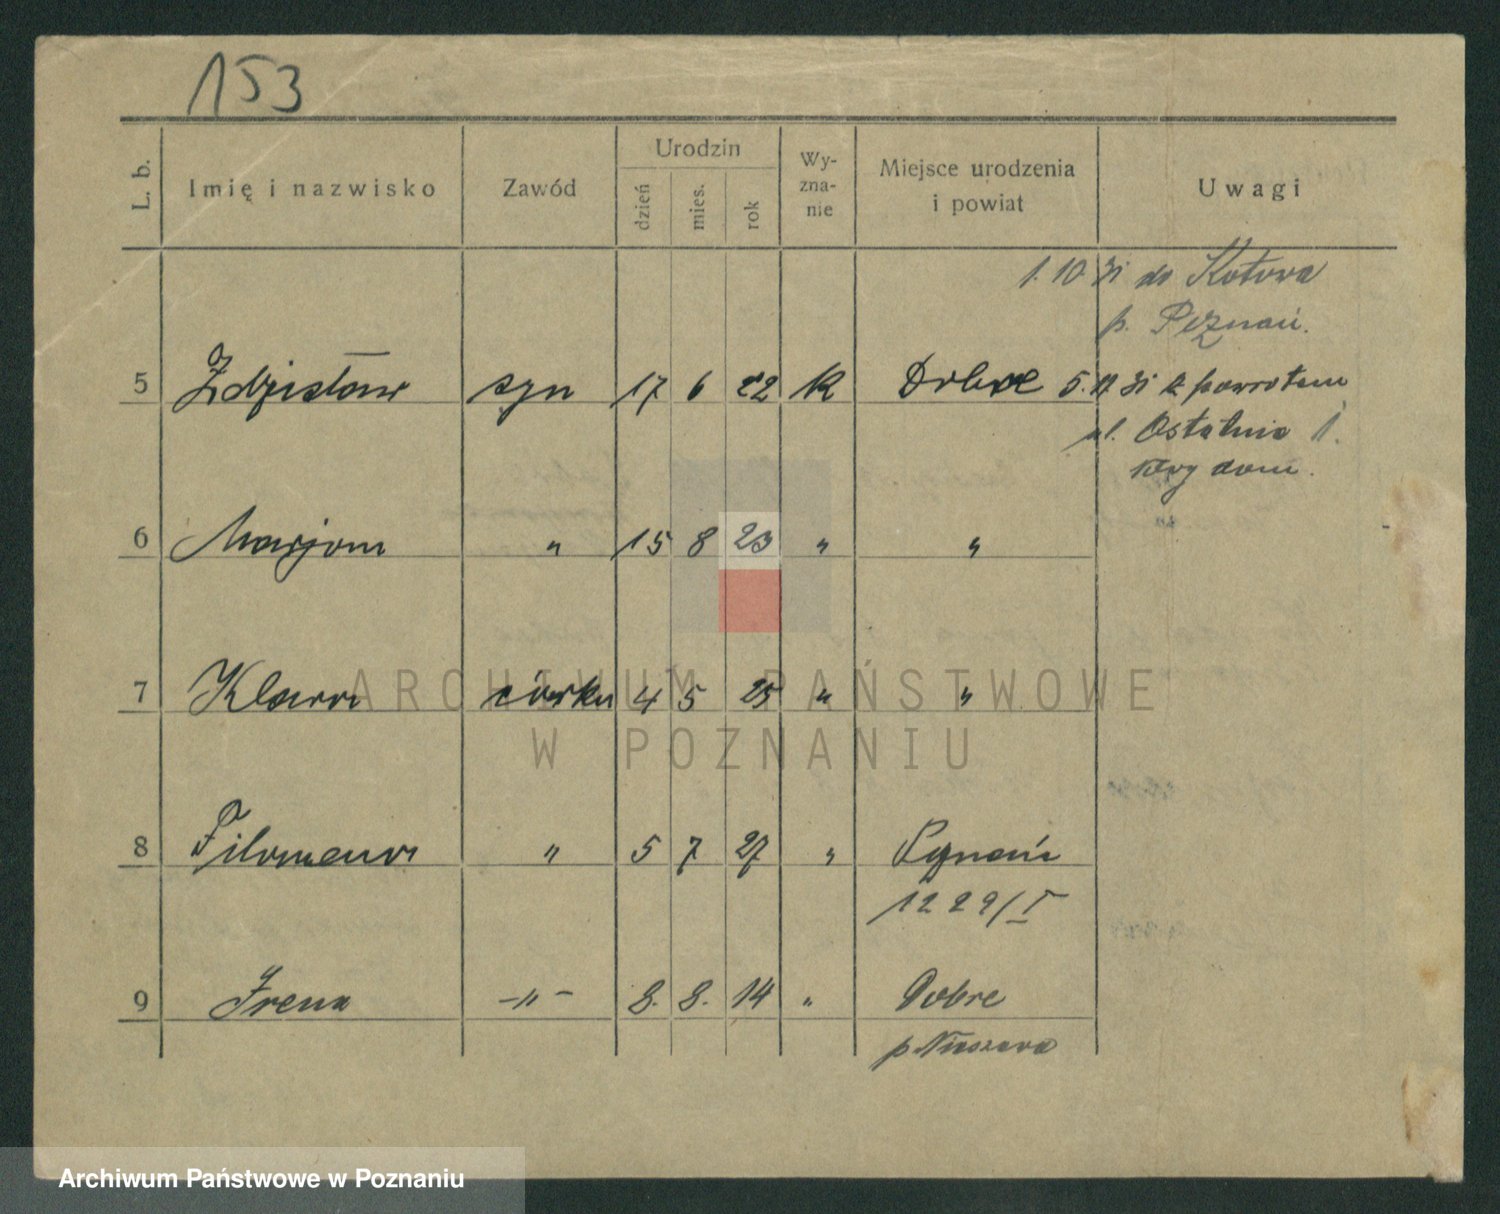 153
L. b.
Imię i nazwisko
Zawód
Urodzin
dzień
mies.
rok
Wy-
zna-
nie
Miejsce urodzenia
i powiat
Uwagi
1. 10 31 do Kotowa
p. Poznań.
5 Zdzisław syn 17 6 22 K Dobre 5. 12 31 z powrotem
ul. Ostatnia 1.
dom.
6 Marjan " 15 8 23 " "
7 Klara córka 4 5 25 " "
8 Filomena " 5 7 27 " Poznań
1229/I
9 Irena -"- 8. 8. 14 " Dobre
p. Nieszawa
ARCHIWUM PAŃSTWOWE
W POZNANIU
Archiwum Państwowe w Poznaniu